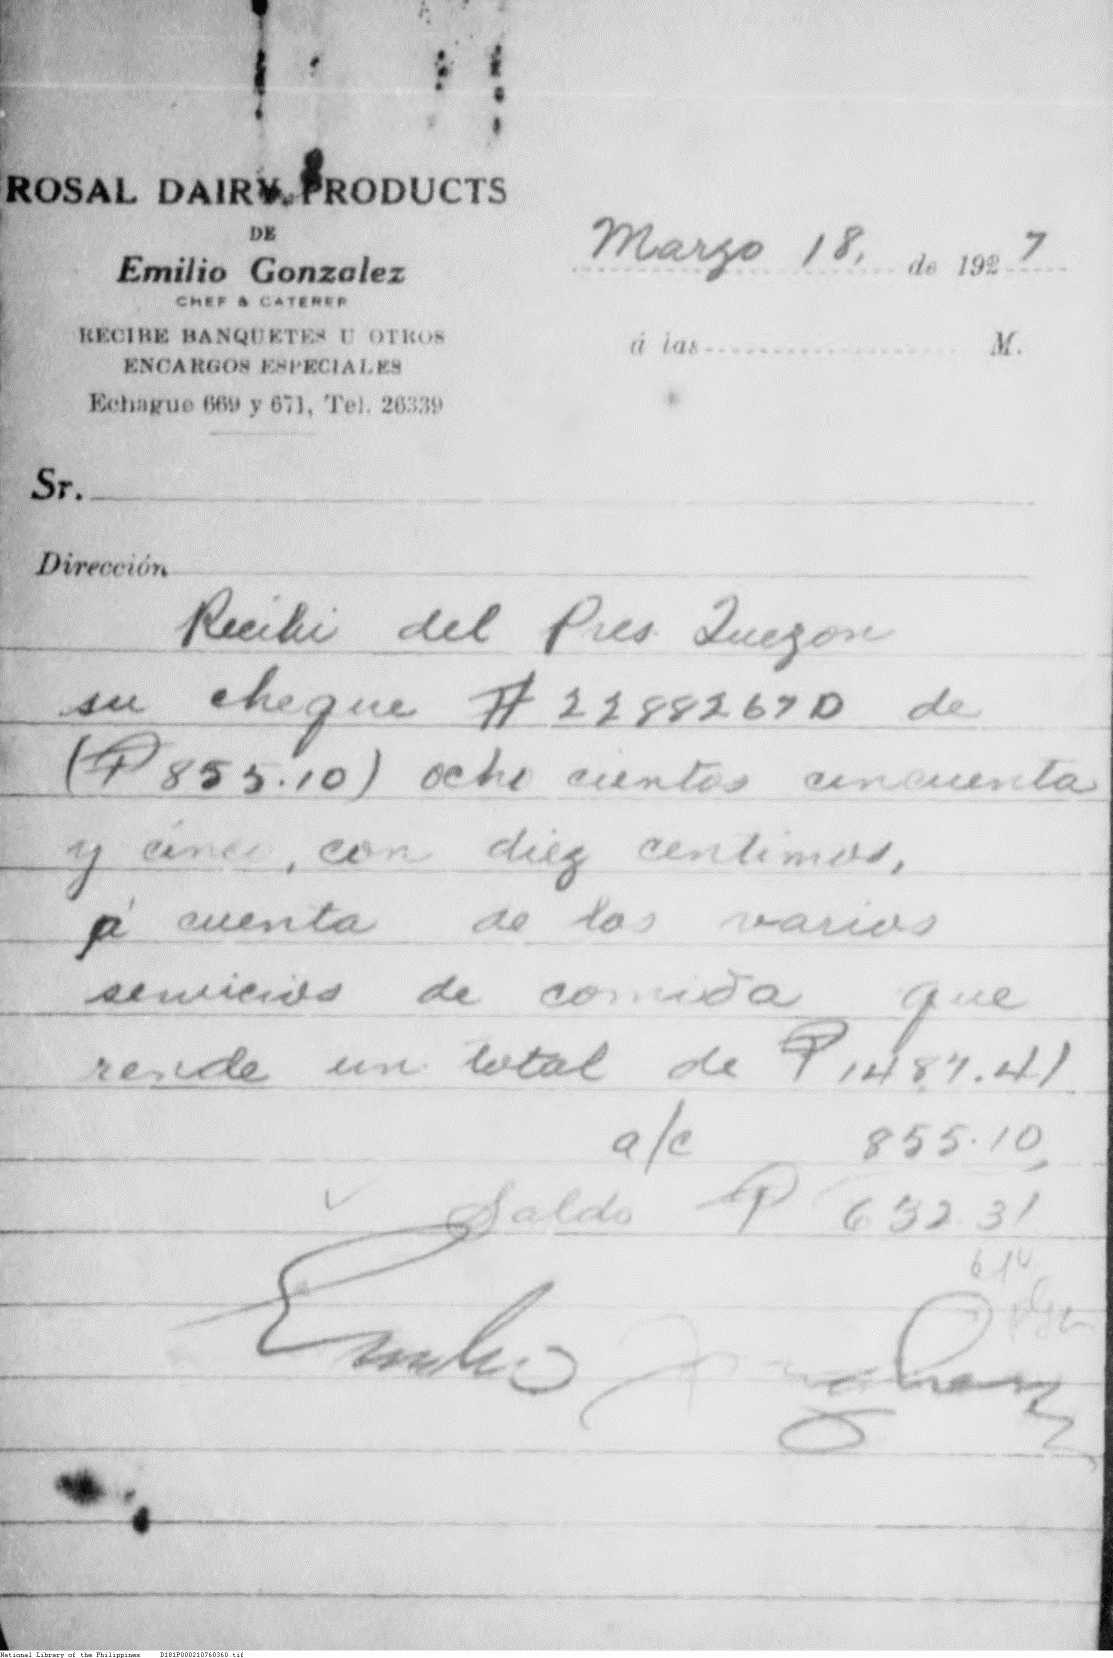 ROSAL DAIRY PRODUCTS
DE
Emilio Gonzalez
CHEF & CATERER
RECIBE BANQUETES U OTROS
ENCARGOS ESPECIALES
Echague 669 y 671, Tel. 26339
Marzo 18, de 1927
á las M.
Sr.
Dirección
Recibi del Pres. Quezon
su cheque # 2288267D de
(₱ 855.10) ocho cientos cincuenta
y cinco, con diez centimos,
á cuenta de los varios
servicios de comida que
rende un total de ₱ 1487.41
a/c 855.10
Saldo ₱ 632.31
Emilio Gonzalez
National Library of the Philippines D181P000210760360.tif